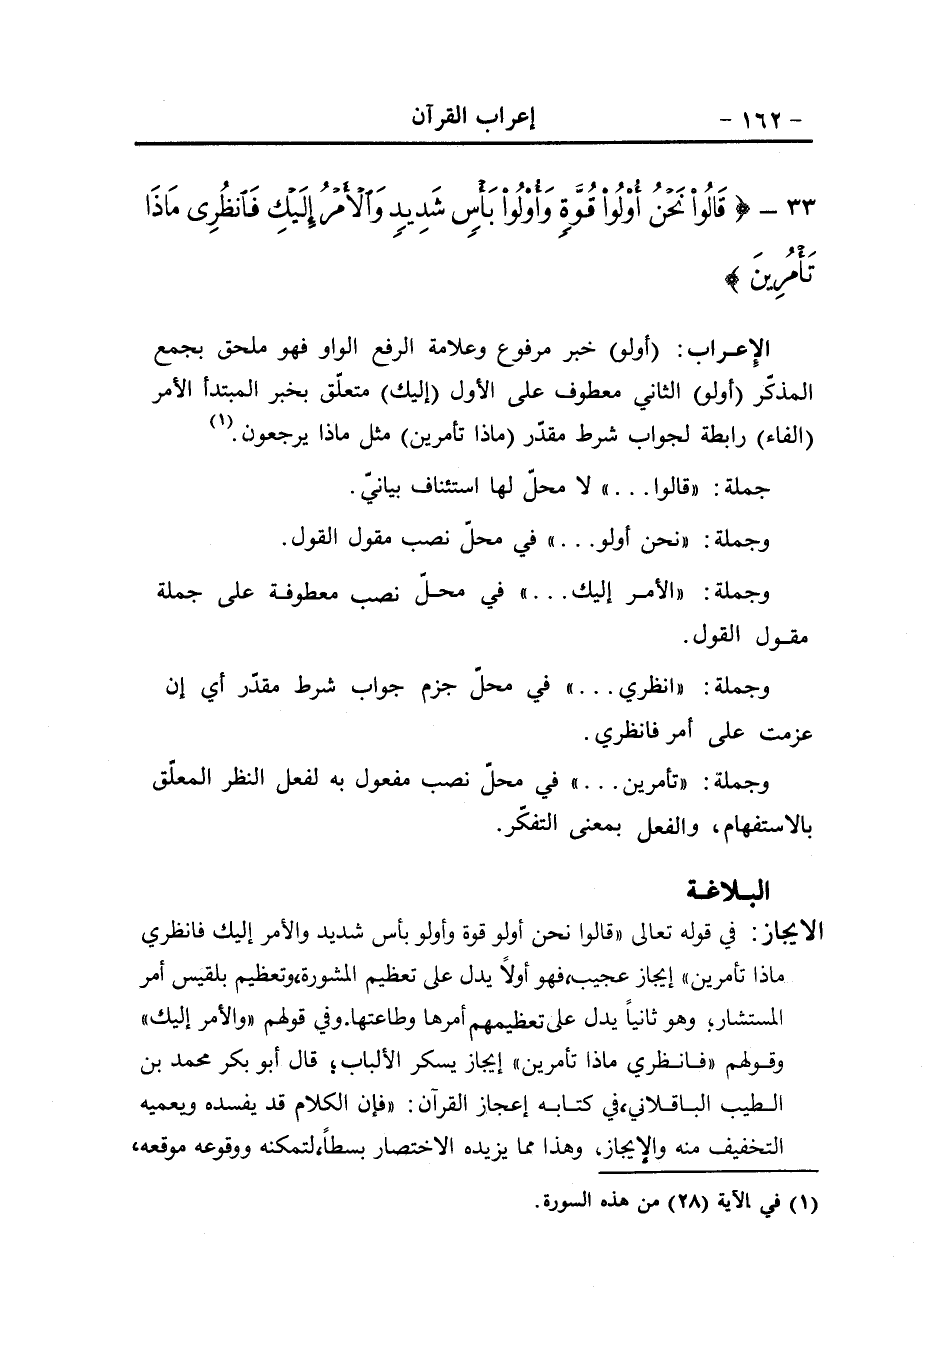 - ١٦٢ - إعراب القرآن
٣٣ - ﴿ قَالُواْ نَحْنُ أُوْلُواْ قُوَّةٍ وَأُوْلُواْ بَأْسٍ شَدِيدٍ وَٱلْأَمْرُ إِلَيْكِ فَٱنظُرِى مَاذَا
تَأْمُرِينَ ﴾
الإعـراب: (أولو) خبر مرفوع وعلامة الرفع الواو فهو ملحق بجمع
المذكّر (أولو) الثاني معطوف على الأول (إليك) متعلّق بخبر المبتدأ الأمر
(الفاء) رابطة لجواب شرط مقدّر (ماذا تأمرين) مثل ماذا يرجعون.(١)
جملة: «قالوا...» لا محلّ لها استئناف بيانيّ.
وجملة: «نحن أولو...» في محلّ نصب مقول القول.
وجملة: «الأمـر إليك...» في محـلّ نصب معطوفـة على جملة
مقـول القول.
وجملة: «انظري...» في محلّ جزم جواب شرط مقدّر أي إن
عزمت على أمر فانظري.
وجملة: «تأمرين...» في محلّ نصب مفعول به لفعل النظر المعلّق
بالاستفهام، والفعل بمعنى التفكّر.
البـلاغـة
الايجاز: في قوله تعالى «قالوا نحن أولو قوة وأولو بأس شديد والأمر إليك فانظري
ماذا تأمرين» إيجاز عجيب،فهو أولاً يدل على تعظيم المشورة،وتعظيم بلقيس أمر
المستشار؛ وهو ثانياً يدل على تعظيمهم أمرها وطاعتها.وفي قولهم «والأمر إليك»
وقـولهم «فـانـظري ماذا تأمرين» إيجاز يسكر الألباب؛ قال أبو بكر محمد بن
الـطيب البـاقـلاني،في كتـابـه إعجاز القرآن: «فإن الكلام قد يفسده ويعميه
التخفيف منه والإيجاز، وهذا مما يزيده الاختصار بسطاً،لتمكنه ووقوعه موقعه،
(١) في الآية (٢٨) من هذه السورة.